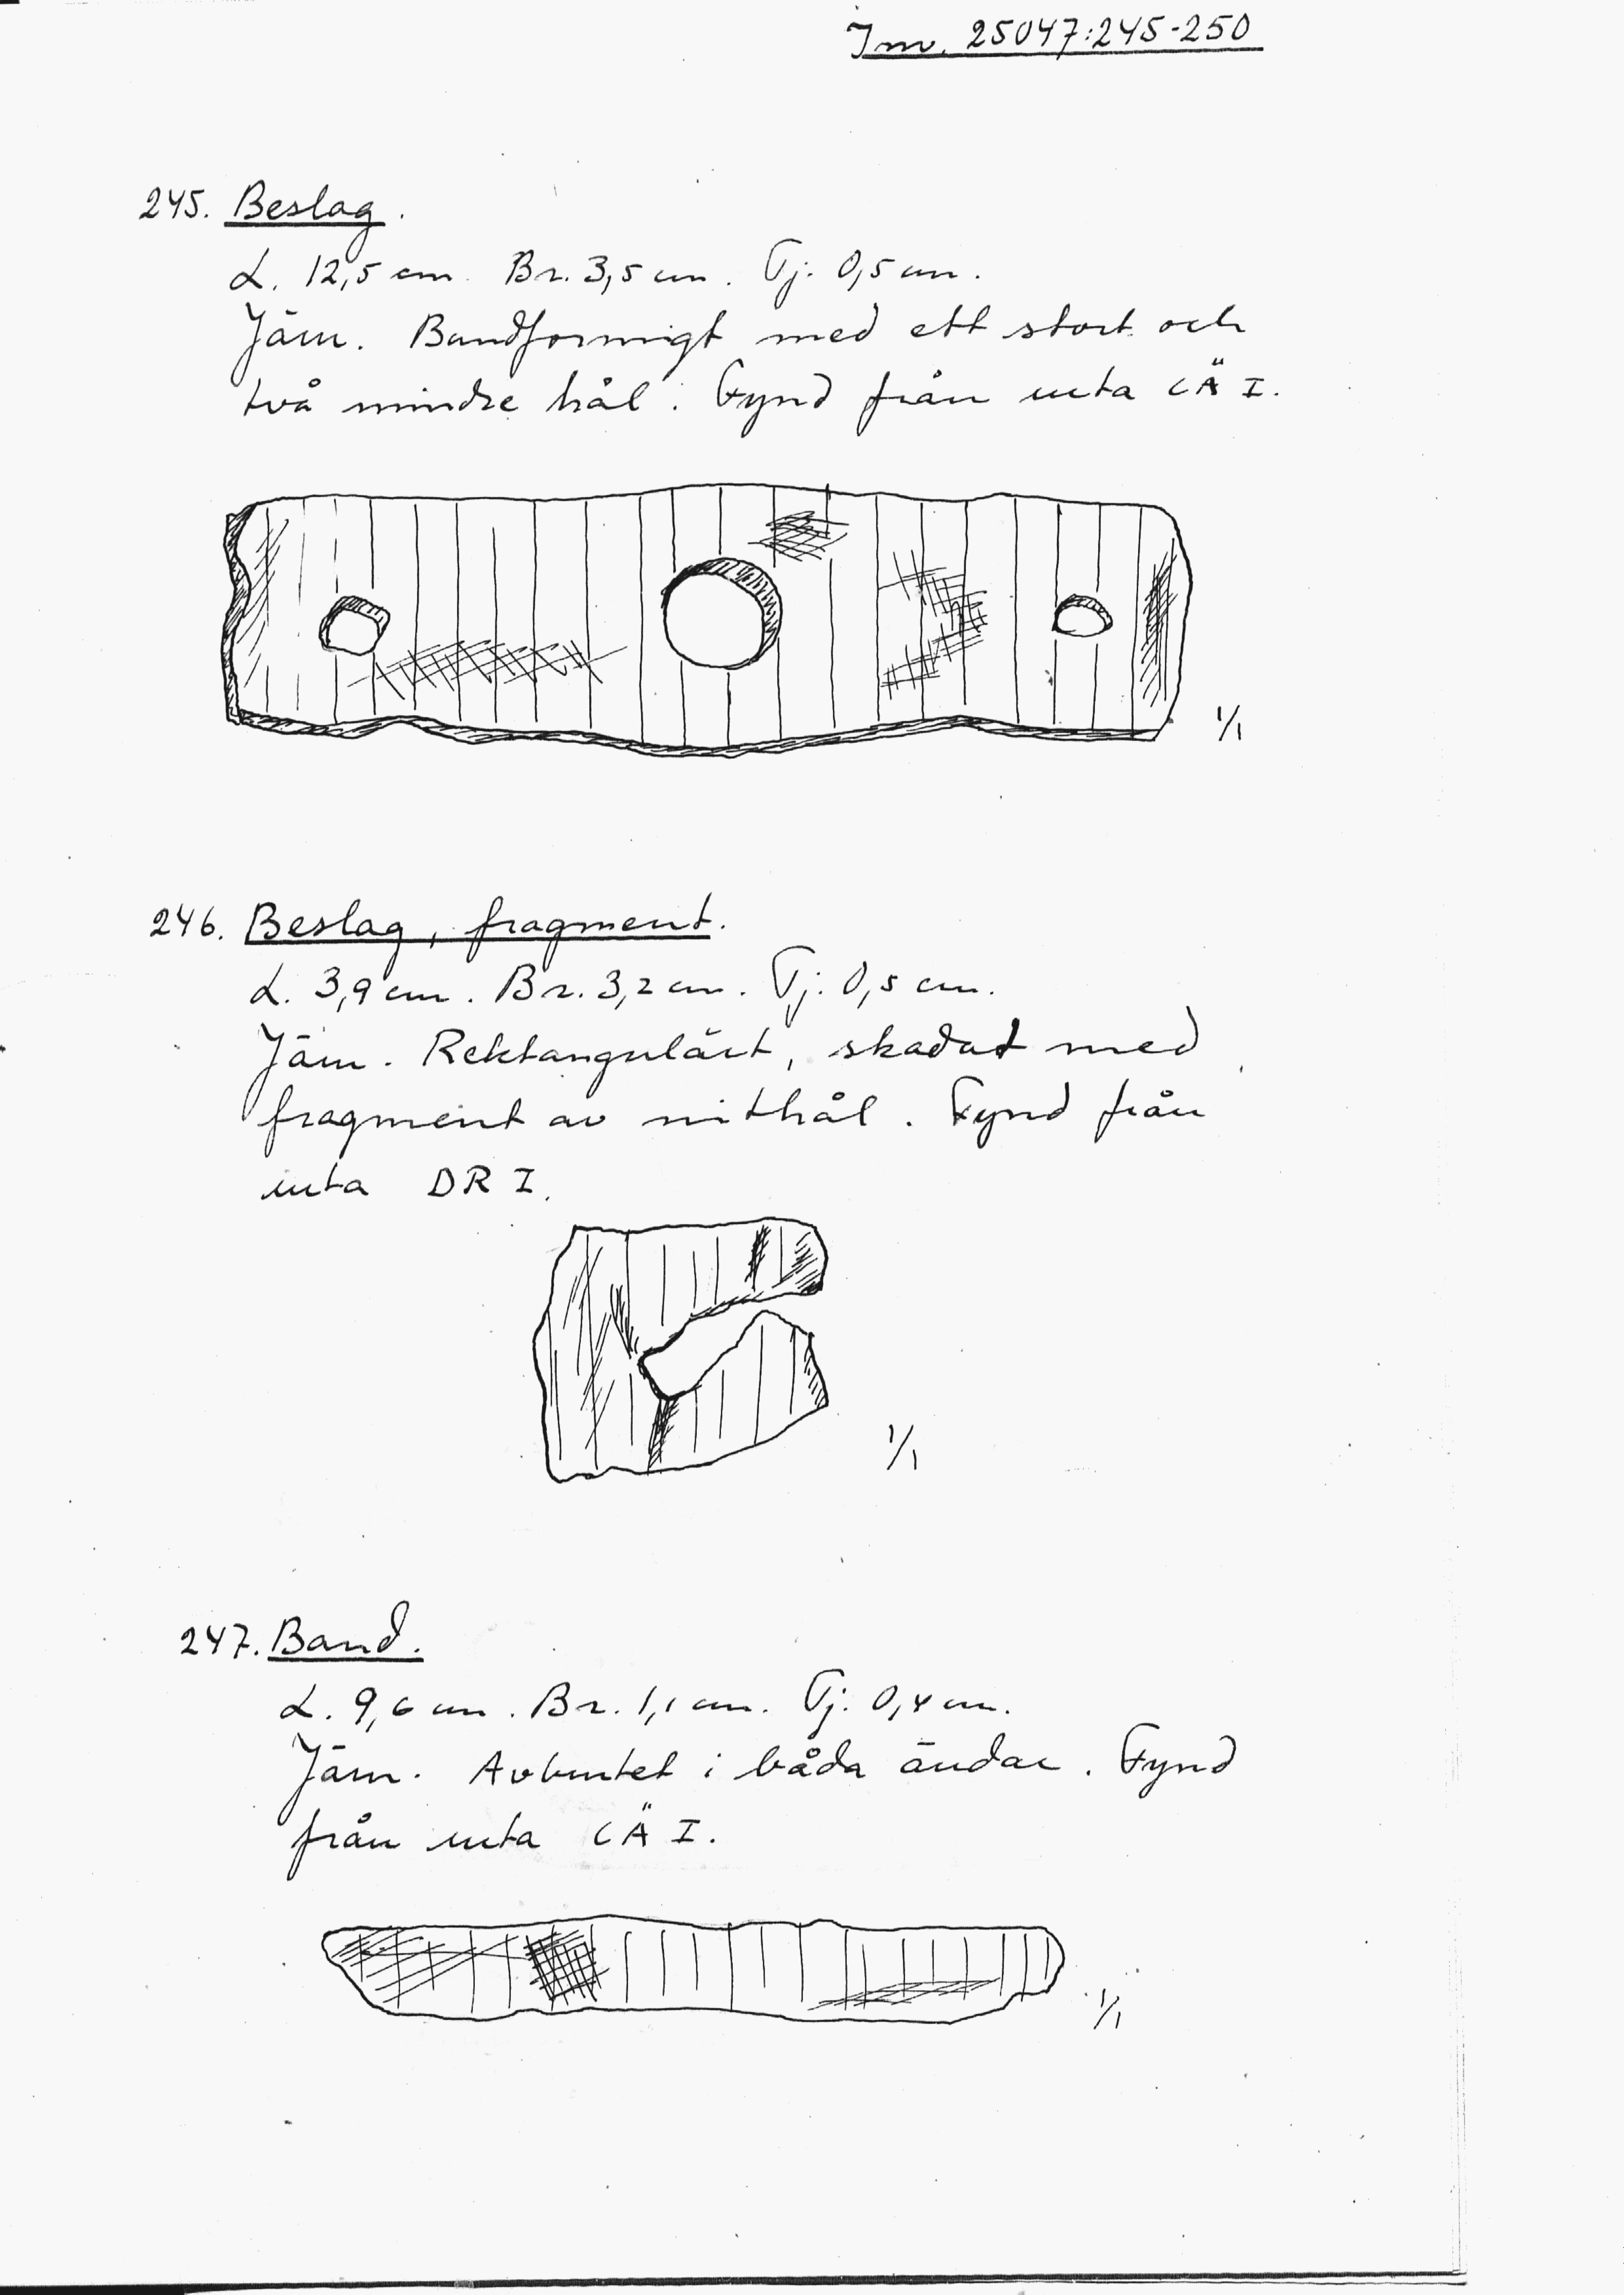 Inv. 25047:245-250
245. Beslag.
L. 12,5 cm. Br. 3,5 cm. Tj. 0,5 cm.
Järn. Bandformigt med ett stort och
två mindre hål. Fynd från ruta CÄ I.
1/1
246. Beslag, fragment.
L. 3,9 cm. Br. 3,2 cm. Tj. 0,5 cm.
Järn. Rektangulärt, skadat med
fragment av nithål. Fynd från
ruta DR I.
1/1
247. Band.
L. 9,6 cm. Br. 1,1 cm. Tj. 0,4 cm.
Järn. Avbrutet i båda ändar. Fynd
från ruta CÄ I.
1/1